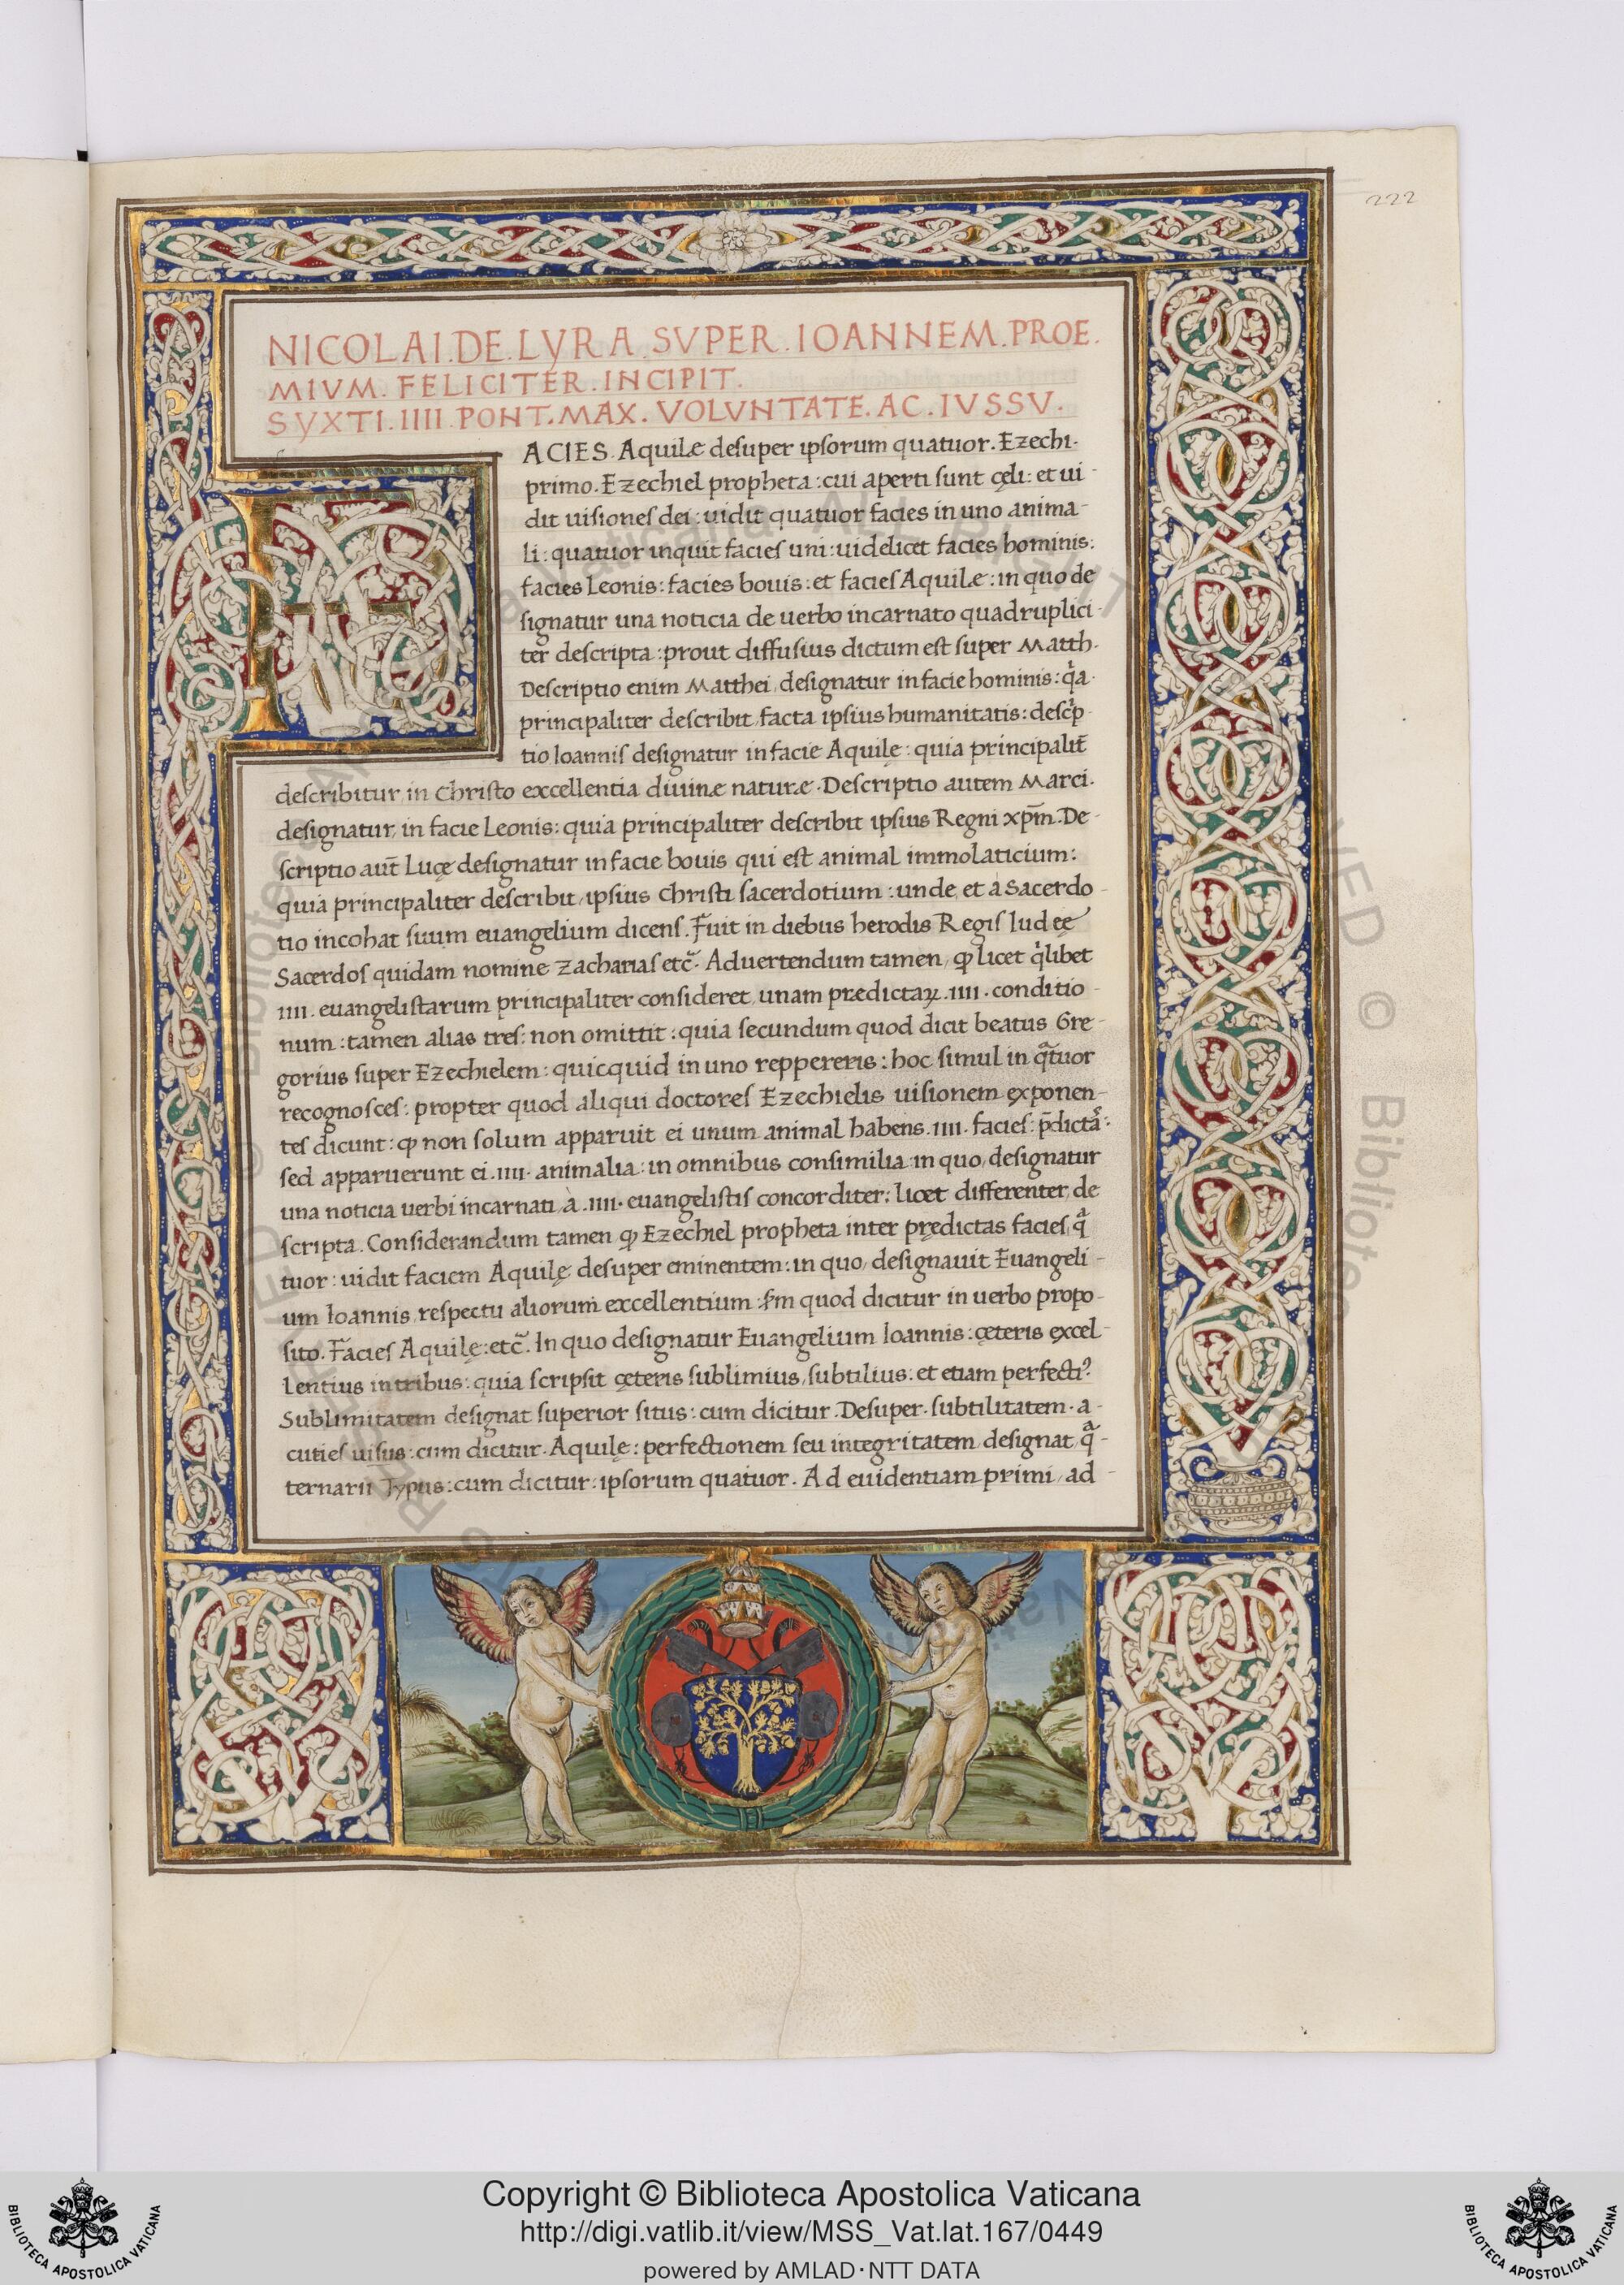 222
NICOLAI.DE.LYRA.SVPER.IOANNEM.PROE.
MIVM.FELICITER.INCIPIT.
SYXTI.IIII.PONT.MAX.VOLVNTATE.AC.IVSSV.
FACIES. Aquilæ desuper ipsorum quatuor. Ezechi.
primo. Ezechiel propheta: cui aperti sunt cęli: et ui-
dit uisiones dei: uidit quatuor facies in uno anima-
li: quatuor inquit facies uni: uidelicet facies hominis:
facies Leonis: facies bouis: et facies Aquilæ: in quo de
signatur una noticia de uerbo incarnato quadruplici-
ter descripta: prout diffusius dictum est super Matth.
Descriptio enim Matthei, designatur in facie hominis: qͥa.
principaliter describit, facta ipsius humanitatis: descͥp-
tio Ioannis designatur in facie Aquilę: quia principalit̄
describitur, in Christo excellentia diuinæ naturæ. Descriptio autem Marci.
designatur, in facie Leonis: quia principaliter describit ipsius Regni xp̄m. De-
scriptio aut̄ Lucę designatur in facie bouis qui est animal immolaticium:
quia principaliter describit, ipsius Christi sacerdotium: unde, et à Sacerdo-
tio incohat suum euangelium dicens. Fuit in diebus herodis Regis Iudeę
Sacerdos quidam nomine Zacharias etc̃. Aduertendum tamen, ꝙ licet qͥlibet
.IIII. euangelistarum principaliter consideret, unam predictaꝝ .IIII. conditio-
num: tamen alias tres: non omittit: quia secundum quod dicit beatus Gre-
gorius super Ezechielem: quicquid in uno reppereris: hoc simul in qᷓtuor
recognosces: propter quod aliqui doctores Ezechielis uisionem exponen-
tes dicunt: ꝙ non solum apparuit ei unum animal habens .IIII. facies: p̄dictaͬ:
sed apparuerunt ei .IIII. animalia: in omnibus consimilia: in quo, designatur
una noticia uerbi incarnati, à .IIII. euangelistis concorditer: licet differenter, de
scripta. Considerandum tamen ꝙ Ezechiel propheta inter prędictas facies, qᷓ
tuor: uidit faciem Aquilę desuper eminentem: in quo, designauit Euangeli-
um Ioannis, respectu aliorum excellentium: ẜm quod dicitur in uerbo propo-
sito. Facies Aquilę: etc̃. In quo designatur Euangelium Ioannis: cęteris excel-
lentius in tribus: quia scripsit cęteris sublimius, subtilius: et etiam perfectiꝰ
Sublimitatem designat superior situs: cum dicitur. Desuper. subtilitatem. a-
cuties uisus: cum dicitur. Aquilę: perfectionem seu integritatem, designat, qᷓ-
ternarii Typus: cum dicitur: ipsorum quatuor. Ad euidentiam primi, ad-
Copyright © Biblioteca Apostolica Vaticana
http://digi.vatlib.it/view/MSS_Vat.lat.167/0449
powered by AMLAD·NTT DATA
BIBLIOTECA APOSTOLICA VATICANA
BIBLIOTECA APOSTOLICA VATICANA